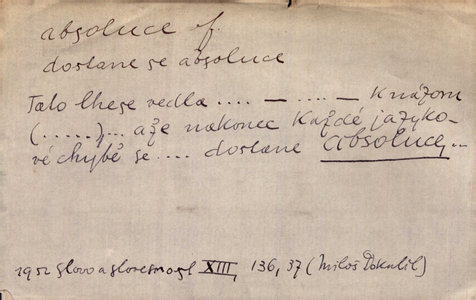 absoluce f.
dostane se absoluce
Tato these vedla .... — .... — k názoru
(.....),... a že nakonec každé jazyko-
vé chybě se .... dostane absoluce,...
1952 Slovo a slovesnost XIII, 136, 37 (Miloš Dokulil)